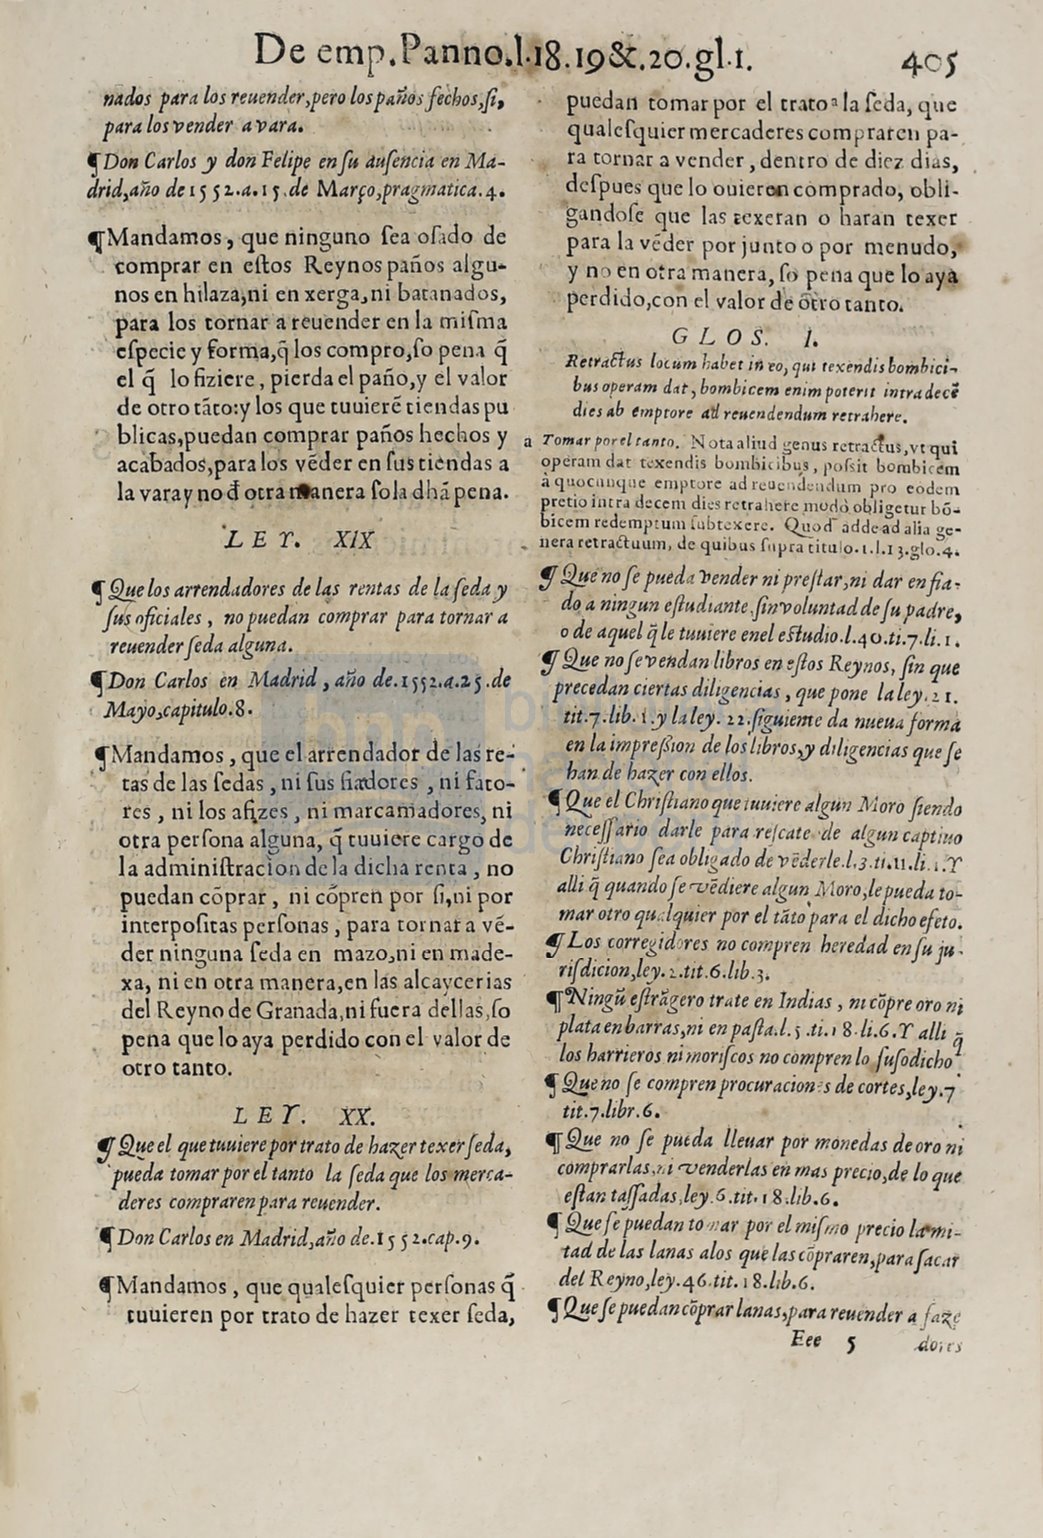 De emp. Panno.l.18.19&.20.gl.1. 405
nados para los reuender,pero los paños fechos,ſi,
para los vender a vara.
¶ Don Carlos y don Felipe en ſu auſencia en Ma-
drid,año de 1552.a.15.de Março,pragmatica.4.
¶ Mandamos, que ninguno ſea oſado de
comprar en eſtos Reynos paños algu-
nos en hilaza,ni en xerga,ni batanados,
para los tornar a reuender en la miſma
eſpecie y forma,q̃ los compro,ſo pena q̃
el q̃ lo fiziere, pierda el paño,y el valor
de otro tãto:y los que tuuierẽ tiendas pu
blicas,puedan comprar paños hechos y
acabados,para los vẽder en ſus tiendas a
la vara y no đ otra manera ſo la dhã pena.
LEY. XIX
¶ Que los arrendadores de las rentas de la ſeda y
ſus oficiales, no puedan comprar para tornar a
reuender ſeda alguna.
¶ Don Carlos en Madrid, año de.1552.a.25.de
Mayo,capitulo.8.
¶ Mandamos, que el arrendador de las re-
tas de las ſedas, ni ſus fiadores, ni fato-
res, ni los afizes, ni marcamadores, ni
otra perſona alguna, q̃ tuuiere cargo de
la adminiſtracion de la dicha renta, no
puedan cõprar, ni cõpren por ſi,ni por
interpoſitas perſonas, para tornar a vẽ-
der ninguna ſeda en mazo,ni en made-
xa, ni en otra manera,en las alcaycerias
del Reyno de Granada,ni fuera dellas,ſo
pena que lo aya perdido con el valor de
otro tanto.
LEY. XX.
¶ Que el que tuuiere por trato de hazer texer ſeda,
pueda tomar por el tanto la ſeda que los merca-
deres compraren para reuender.
¶ Don Carlos en Madrid,año de.1552.cap.9.
¶ Mandamos, que qualeſquier perſonas q̃
tuuieren por trato de hazer texer ſeda,
puedan tomar por el trato ª la ſeda, que
qualeſquier mercaderes compraren pa-
ra tornar a vender, dentro de diez dias,
deſpues que lo ouieren comprado, obli-
gandoſe que las texeran o haran texer
para la vẽder por junto o por menudo,
y no en otra manera, ſo pena que lo aya
perdido,con el valor de otro tanto.
GLOS. I.
Retractus locum habet in eo, qui texendis bombici-
bus operam dat, bombicem enim poterit intra decẽ
dies ab emptore ad reuendendum retrahere.
a Tomar por el tanto. Nota aliud genus retractus,vt qui
operam dat texendis bombicibus, poſsit bombicem
à quocunque emptore ad reuendendum pro eodem
pretio intra decem dies retrahere modò obligetur bõ-
bicem redemptum ſubtexere. Quod adde ad alia ge-
nera retractuum, de quibus ſupra titulo.1.l.13.glo.4.
¶ Que no ſe pueda vender ni preſtar,ni dar en fia-
do a ningun eſtudiante,ſin voluntad de ſu padre,
o de aquel q̃ le tuuiere en el eſtudio.l.40.ti.7.li.1.
¶ Que no ſe vendan libros en eſtos Reynos, ſin que
precedan ciertas diligencias, que pone la ley.21.
tit.7.lib.1.y la ley. 22.ſiguiente da nueua forma
en la impreſsion de los libros,y diligencias que ſe
han de hazer con ellos.
¶ Que el Chriſtiano que tuuiere algun Moro ſiendo
neceſſario darle para reſcate de algun captiuo
Chriſtiano ſea obligado de vẽderle.l.3.ti.11.li.1.Y
alli q̃ quando ſe vẽdiere algun Moro,le pueda to-
mar otro qualquier por el tãto para el dicho efeto.
¶ Los corregidores no compren heredad en ſu ju-
riſdicion,ley.2.tit.6.lib.3.
¶ Ningũ eſtrãgero trate en Indias, ni cõpre oro ni
plata en barras,ni en paſta.l.5.ti.18.li.6.Y alli q̃
los harrieros ni moriſcos no compren lo ſuſodicho
¶ Que no ſe compren procuraciones de cortes,ley.7
tit.7.libr.6.
¶ Que no ſe pueda lleuar por monedas de oro ni
comprarlas,ni venderlas en mas precio,de lo que
eſtan taſſadas,ley.6.tit.18.lib.6.
¶ Que ſe puedan tomar por el miſmo precio la mi-
tad de las lanas a los que las cõpraren,para ſacar
del Reyno,ley.46.tit.18.lib.6.
¶ Que ſe puedan cõprar lanas,para reuender a faze
Eee 5 dores